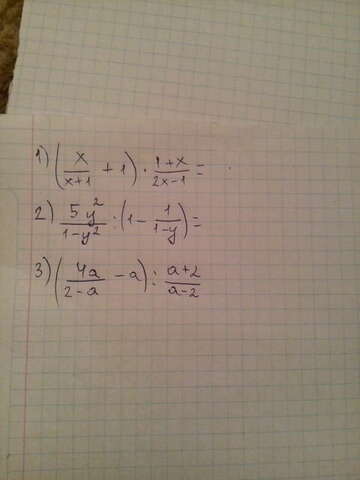 1) (x/(x+1) + 1) · (1+x)/(2x-1) =
2) 5y²/(1-y²) : (1 - 1/(1-y)) =
3) (4a/(2-a) - a) : (a+2)/(a-2)